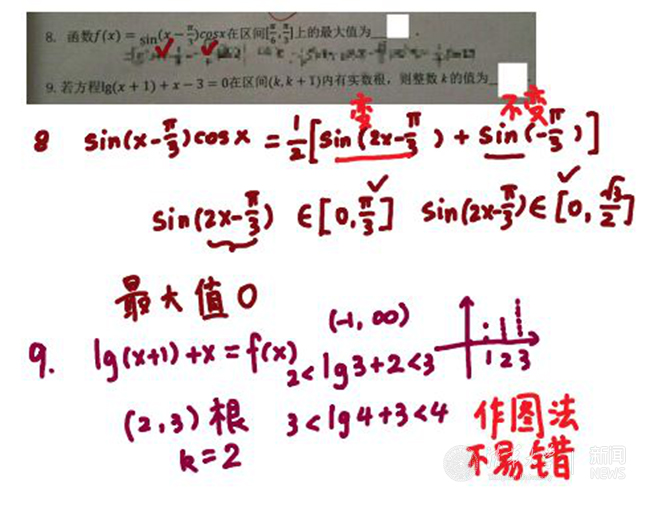 8. 函数f(x) = sin(x − π/3)cosx在区间[π/6, π/3]上的最大值为____.
9. 若方程lg(x + 1) + x − 3 = 0在区间(k, k + 1)内有实数根，则整数 k 的值为____.
变 不变
8 sin(x-π/3)cosx = 1/2[sin(2x-π/3) + sin(-π/3)]
sin(2x-π/3) ∈[0,π/3] sin(2x-π/3)∈[0,√3/2]
最大值0
(-1, ∞)
9. lg(x+1)+x=f(x) 2<lg3+2<3
1 2 3
(2,3)根 3<lg4+3<4 作图法
k=2 不易错
新闻
NEWS